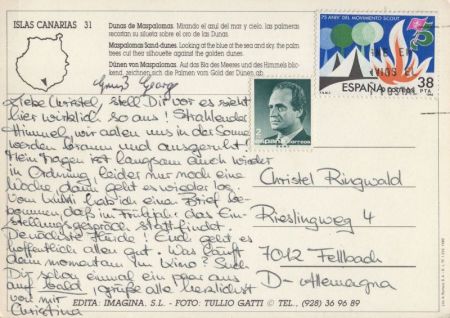 ISLAS CANARIAS 31
Dunas de Maspalomas. Mirando el azul del mar y cielo, las palmeras
recortan su silueta sobre el oro de las Dunas.
Maspalomas Sand-dunes. Looking at the blue of the sea and sky, the palm
trees cut their silhouette against the golden dunes.
Dünen von Maspalomas. Auf das Bla des Meeres und des Himmels blic-
kend, zeichnen sich die Palmen vom Gold der Dünen ab.
Gruß Georg
Liebe Christel, stell Dir vor es sieht
hier wirklich so aus! Strahlender
Himmel, wir aalen uns in der Sonne
werden braun und ausgeruht!
Mein Magen ist langsam auch wieder
in Ordnung, leider nur noch eine
Woche dann geht es wieder los.
Vom hab' ich einen Brief be-
kommen, daß im Frühjahr das Ein-
stellungsgespräch stattfindet.
Drück die Daumen! Und geht es
hoffentlich allen gut. Was läuft
denn momentan im Kino? Such
Dir schon einmal ein paar aus
auf bald, grüße alle herzlichst
von mir
Christina
75 ANIV. DEL MOVIMIENTO SCOUT
ESPAÑA
38
PTA
correos
2
Christel Ringwald
Rieslingweg 4
7012 Fellbach
D-Allemagna
EDITA: IMAGINA. S.L. - FOTO: TULLIO GATTI © TEL., (928) 36 96 89